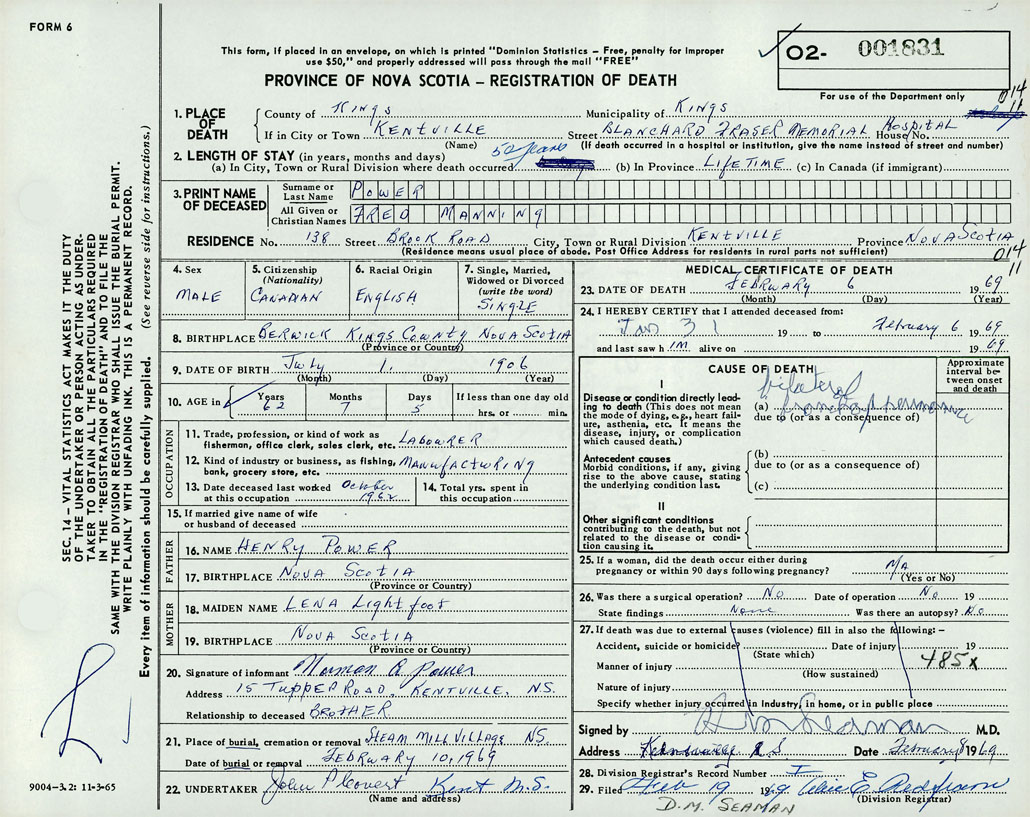 FORM 6
This form, if placed in an envelope, on which is printed "Dominion Statistics – Free, penalty for improper
use $50," and properly addressed will pass through the mail "FREE"
PROVINCE OF NOVA SCOTIA – REGISTRATION OF DEATH
02- 001831
For use of the Department only
014
11
1. PLACE OF DEATH
County of Kings Municipality of Kings
If in City or Town KENTVILLE Street BLANCHARD FRASER MEMORIAL HOSPITAL House No.
(Name) (If death occurred in a hospital or institution, give the name instead of street and number)
2. LENGTH OF STAY (in years, months and days) 50 years
(a) In City, Town or Rural Division where death occurred (b) In Province LIFETIME (c) In Canada (if immigrant)
3. PRINT NAME OF DECEASED
Surname or Last Name POWER
All Given or Christian Names FRED MANNING
RESIDENCE No. 138 Street BROOK ROAD City, Town or Rural Division KENTVILLE Province NOVA SCOTIA
(Residence means usual place of abode. Post Office Address for residents in rural parts not sufficient)
014
11
4. Sex
MALE
5. Citizenship
(Nationality)
CANADIAN
6. Racial Origin
ENGLISH
7. Single, Married,
Widowed or Divorced
(write the word)
SINGLE
8. BIRTHPLACE BERWICK KINGS COUNTY NOVA SCOTIA
(Province or Country)
9. DATE OF BIRTH July 1. 1906
(Month) (Day) (Year)
10. AGE in Years Months Days If less than one day old
62 7 5 hrs. or min.
OCCUPATION
11. Trade, profession, or kind of work as
fisherman, office clerk, sales clerk, etc. LABOURER
12. Kind of industry or business, as fishing,
bank, grocery store, etc. MANUFACTURING
13. Date deceased last worked
at this occupation October 1962
14. Total yrs. spent in
this occupation
15. If married give name of wife
or husband of deceased
FATHER
16. NAME HENRY POWER
17. BIRTHPLACE NOVA SCOTIA
(Province or Country)
MOTHER
18. MAIDEN NAME LENA Lightfoot
19. BIRTHPLACE NOVA SCOTIA
(Province or Country)
20. Signature of informant Power
Address 15 TUPPER ROAD, KENTVILLE, NS.
Relationship to deceased BROTHER
21. Place of burial, cremation or removal STEAM MILL VILLAGE NS
Date of burial or removal FEBRUARY 10, 1969
22. UNDERTAKER John Kent N.S.
(Name and address)
MEDICAL CERTIFICATE OF DEATH
23. DATE OF DEATH FEBRUARY 6 1969
(Month) (Day) (Year)
24. I HEREBY CERTIFY that I attended deceased from:
Jan 31 19 to February 6 1969
and last saw him alive on 1969
CAUSE OF DEATH
Approximate
interval be-
tween onset
and death
I
Disease or condition directly lead-
ing to death (This does not mean
the mode of dying, e.g., heart fail-
ure, asthenia, etc. It means the
disease, injury, or complication
which caused death.)
bilateral
(a)
due to (or as a consequence of)
Antecedent causes
Morbid conditions, if any, giving
rise to the above cause, stating
the underlying condition last.
(b)
due to (or as a consequence of)
(c)
II
Other significant conditions
contributing to the death, but not
related to the disease or condi-
tion causing it.
25. If a woman, did the death occur either during
pregnancy or within 90 days following pregnancy?
(Yes or No)
26. Was there a surgical operation? No Date of operation No 19
State findings None Was there an autopsy? No
27. If death was due to external causes (violence) fill in also the following: –
Accident, suicide or homicide? Date of injury 19
(State which)
Manner of injury 485x
(How sustained)
Nature of injury
Specify whether injury occurred in industry, in home, or in public place
Signed by Seaman M.D.
Address Date February 8 1969
28. Division Registrar's Record Number
29. Filed Feb 19 1969
(Division Registrar)
D.M. SEAMAN
SEC. 14 – VITAL STATISTICS ACT MAKES IT THE DUTY
OF THE UNDERTAKER OR PERSON ACTING AS UNDER-
TAKER TO OBTAIN ALL THE PARTICULARS REQUIRED
IN THE "REGISTRATION OF DEATH" AND TO FILE THE
SAME WITH THE DIVISION REGISTRAR WHO SHALL ISSUE THE BURIAL PERMIT.
WRITE PLAINLY WITH UNFADING INK. THIS IS A PERMANENT RECORD.
Every item of information should be carefully supplied. (See reverse side for instructions.)
9004-3.2: 11-3-65